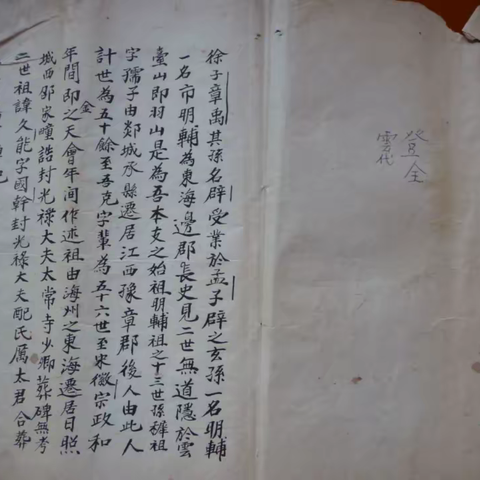 登全
雲代
徐子章禹其孫名辟受業於孟子辟之玄孫一名明輔
一名市明輔為東海邊郡長史見二世無道隱於雲
臺山即羽山是為吾本支之始祖明輔祖之十三世孫稺祖
字孺子由郯城承縣遷居江西豫章郡後人由此人
計世為五十餘至吾克字輩為五十六世至宋徽宗政和
年間即金之天會年间作述祖由海州之東海遷居日照
城西郭家疃誥封光祿大夫太常寺少卿葬碑無考
二世祖諱久能字國幹封光祿大夫配氏厲太君合葬